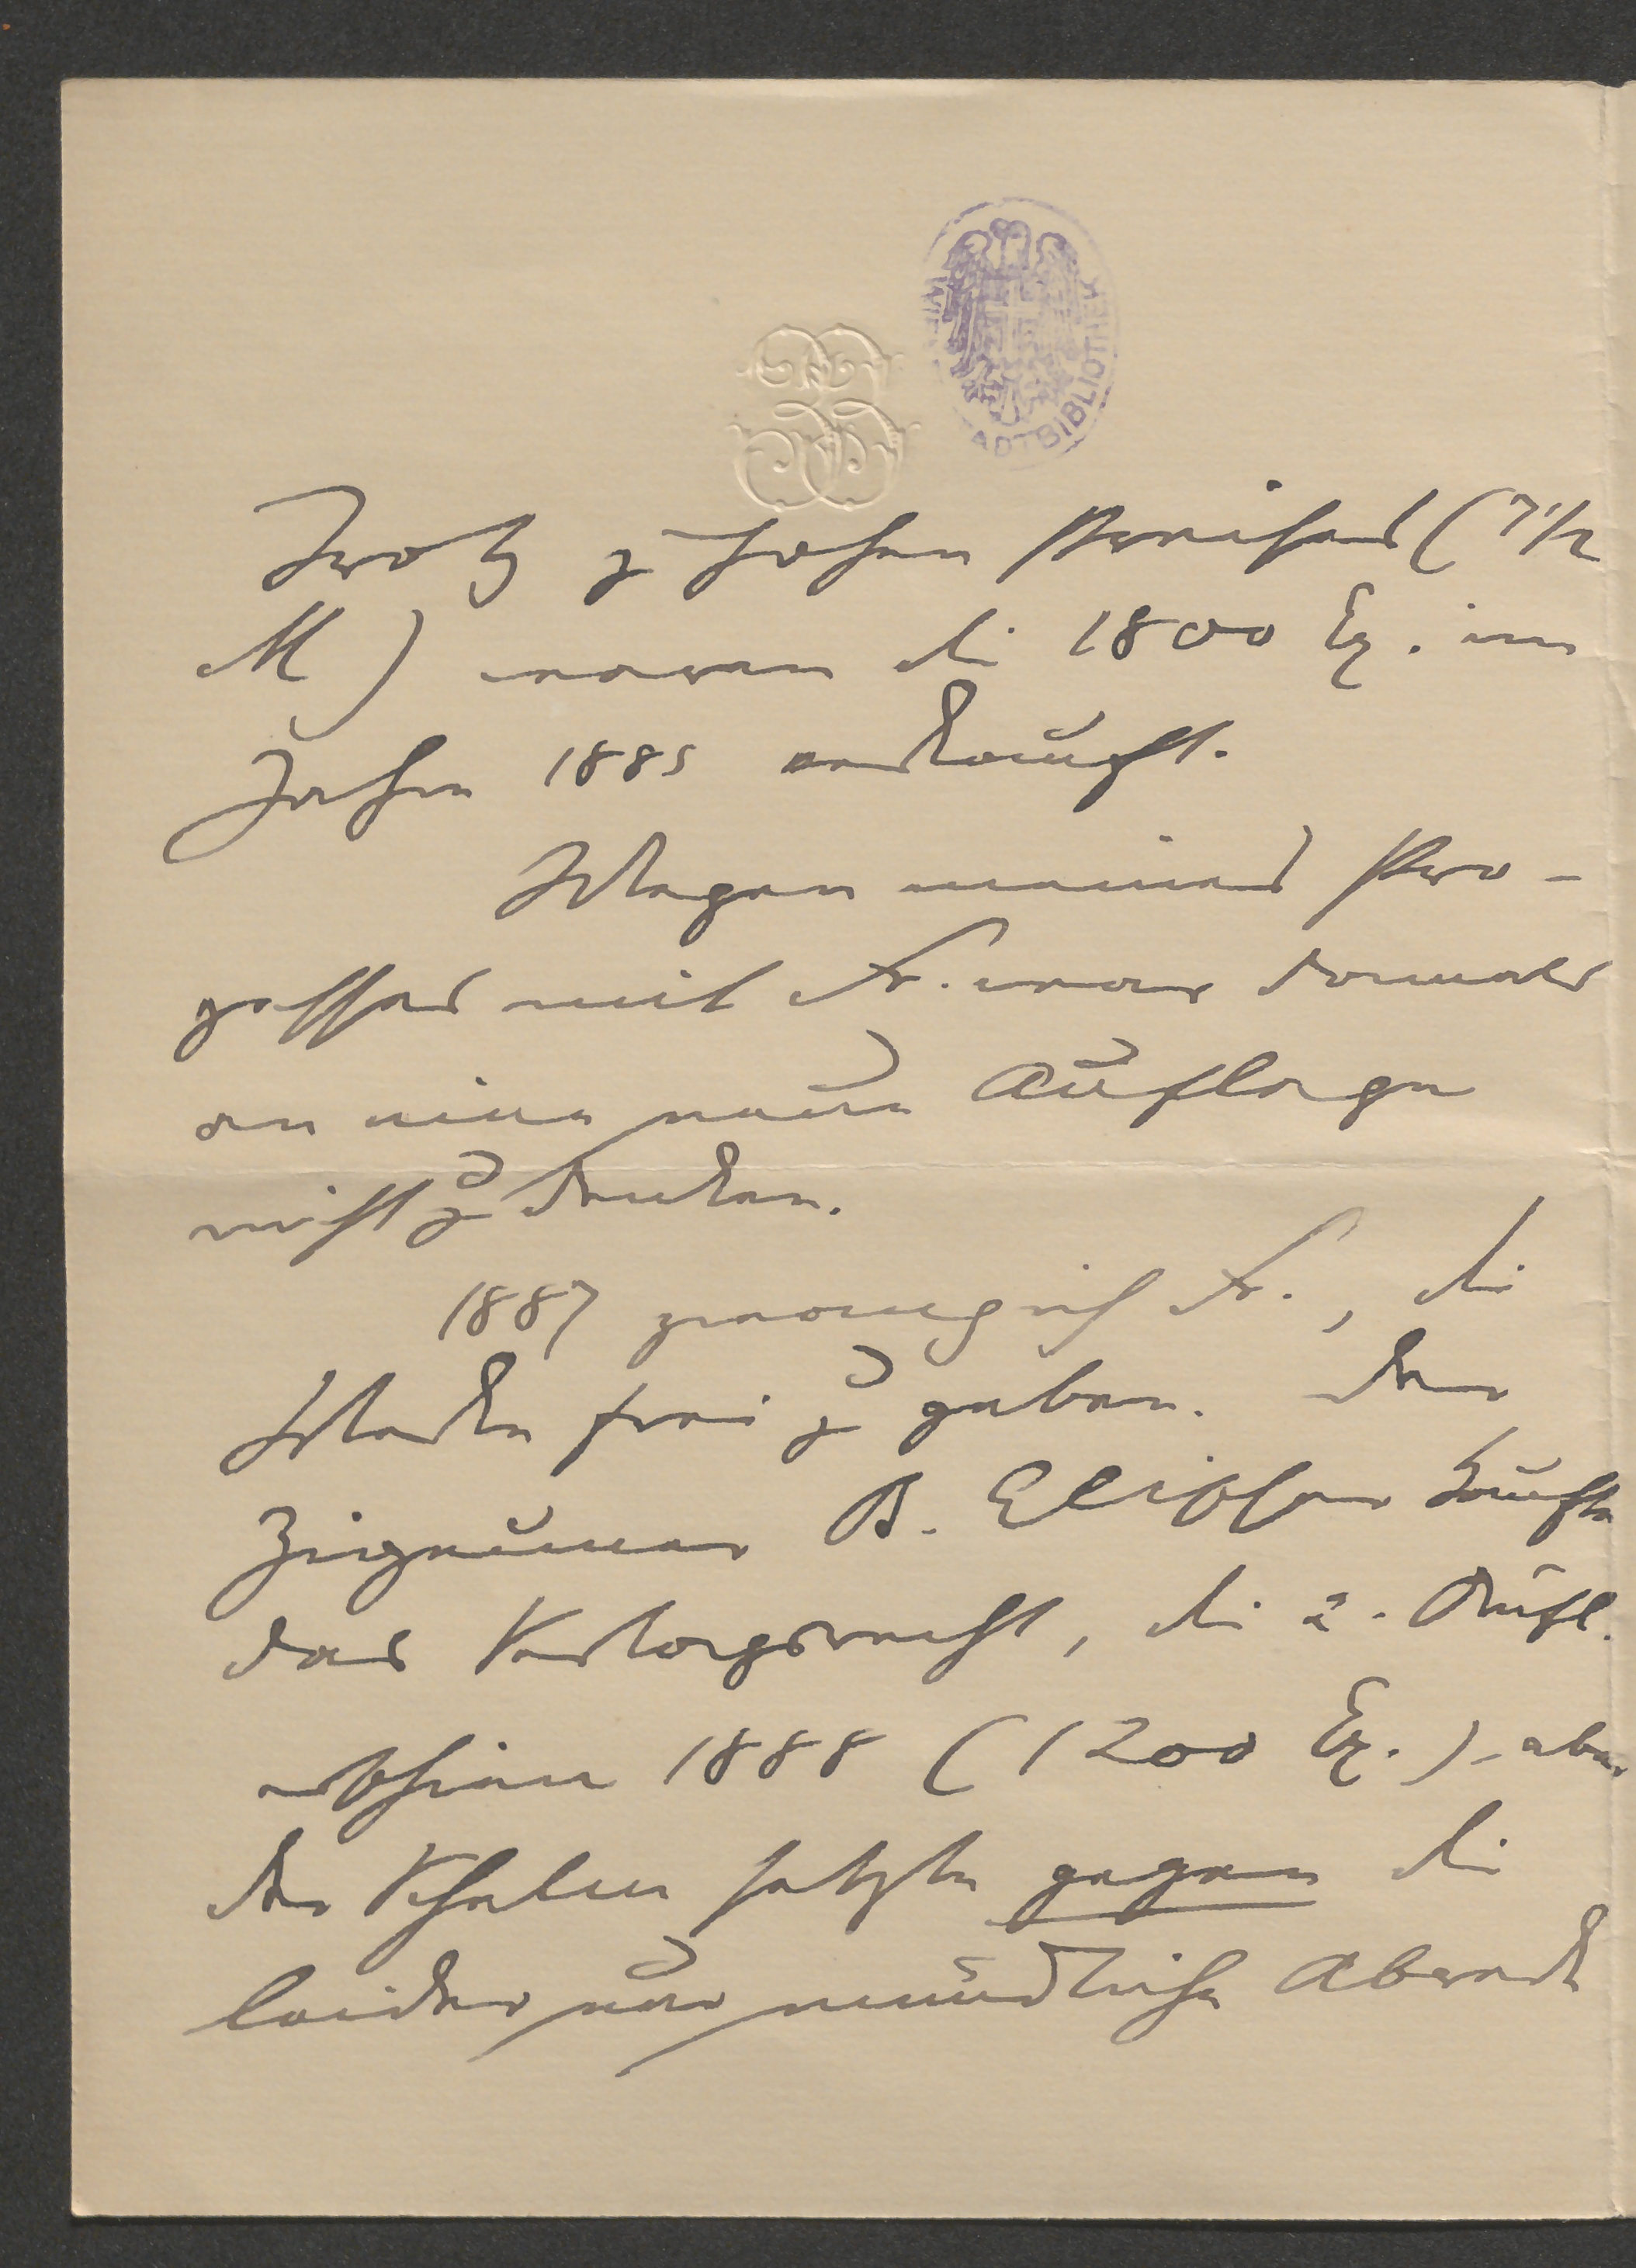 ADTBIBLIOTHEK
Trotz zu hohen Preises (7 1/2
M) waren die 1800 Ex. im
Jahre 1885 verkauft.
Wegen meines Pro-
zesses mit Fr. war damals
an eine neue Auflage
nicht zu denken.
1887 zwang ich Fr., die
Werke frei zu geben. Der
Zigeuner B. Elischer kaufte
das Verlagsrecht, die 2. Aufl.
erschien 1888 (1200 Ex.) - aber
der Schelm setzte gegen die
leider nur mündliche Abrede